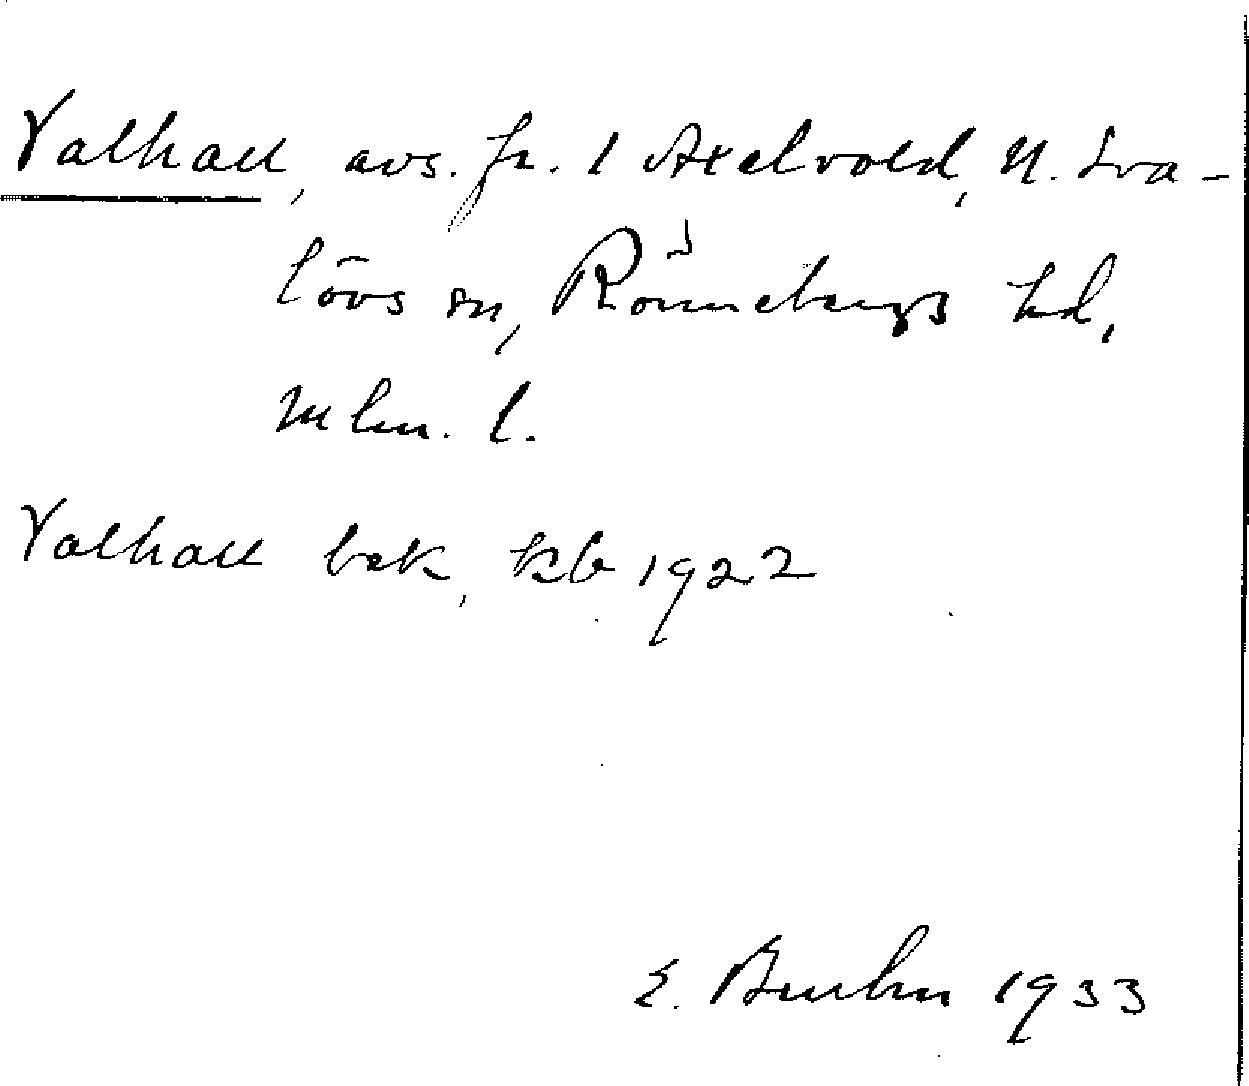 Valhall, avs. fr. 1 Axelvold, N. Sva-
lövs sn, Rönnebergs hd,
Mlm. l.
Valhall bek, kb 1922
E. Bruhn 1933